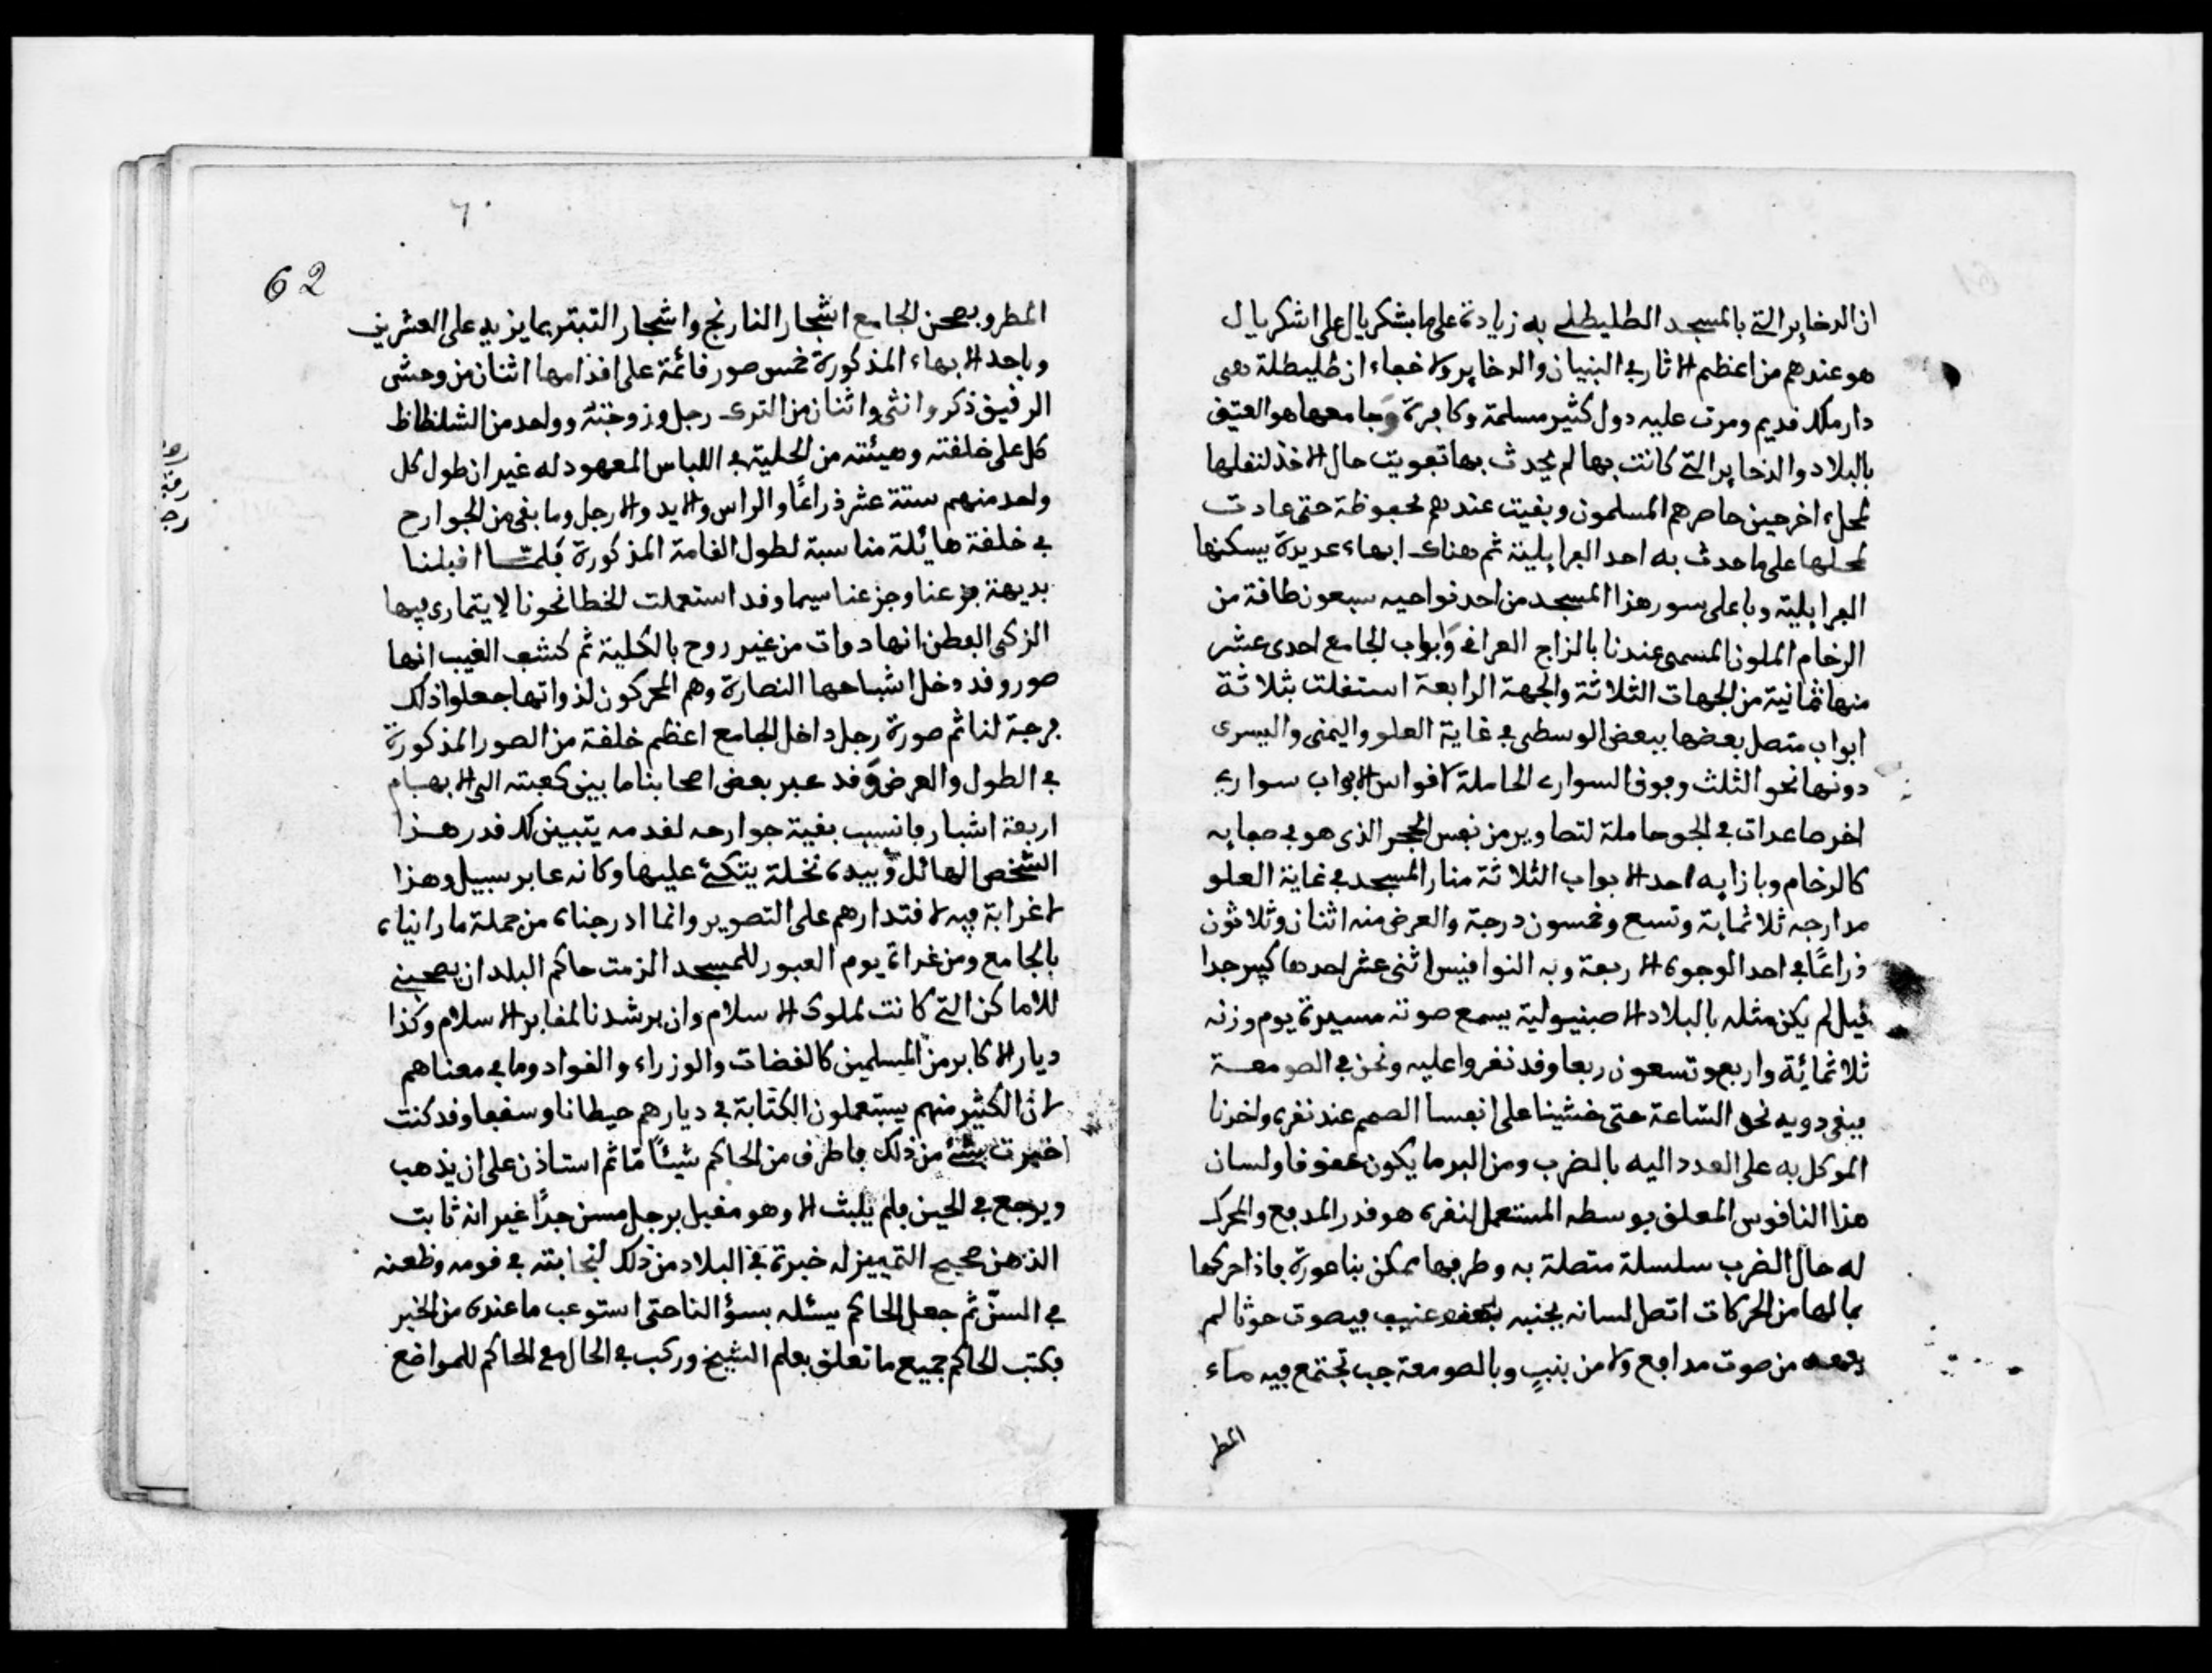 ان الدخاير التي بالمسجد الطليطلي به زيادة على ما بشكريال على اشكريال
هو عندهم من اعظم الاثار في البنيان والدخاير ولا خفاء ان طليطلة هي
دار ملك قديم ومرت عليه دول كثير مسلمة وكافرة وجامعها هو العتيق
بالبلاد والدخاير التي كانت بها لم يحدث بها تفويت حال الاخذ لنقلها
لمحل اخر حين حاصرهم المسلمون وبقيت عندهم محفوظة حتى عادت
لمحلها على ما حدث به احد الفرايلية ثم هناك ابهاء عديدة يسكنها
الفرايلية وباعلى سور هذا المسجد من احد نواحيه سبعون طاقة من
الرخام الملون المسمى عندنا بالزاج العراقي وابواب الجامع احدى عشر
منها ثمانية من الجهات الثلاثة والجهة الرابعة استقلت بثلاثة
ابواب متصل بعضها ببعض الوسطى في غاية العلو واليمنى واليسرى
دونها نحو الثلث وفوق السواري الحاملة لاقواس الابواب سواري
اخر صاعدات في الجو حاملة لتصاوير من نفس الحجر الذي هو في صفايه
كالرخام وبازايه احد الابواب الثلاثة منار المسجد في غاية العلو
مدارجه ثلاثماية وتسع وخمسون درجة والعرض منه اثنان وثلاثون
ذراعًا في احد الوجوه الاربعة وبه النواقيس اثنى عشر احدها كبير جدا
فيل لم يكن مثله بالبلاد الاصبنيولية يسمع صوته مسيرة يوم وزنه
ثلاثمائة واربع وتسعون ربعا وقد نقروا عليه ونحن في الصومعة
فبقى دويه نحو الساعة حتى خشينا على انفسنا الصمم عند نقره واخرنا
الموكل به على العدد اليه بالضرب ومن البرد ما يكون عفوفا ولسان
هذا الناقوس المعلق بوسطه المستعمل لنقره هو قدر المدفع والمحرك
له حال الضرب سلسلة متصلة به وطرفها ممكن بناعورة فاذا حركها
بما لها من الحركات اتصل لسانه بجنبه بعنف عنيف فيصوت حوثا لم
من صوت مدافع ولا من بنب وبالصومعة جب تجتمع فيه ماء
المطر
62
المطر وبصحن الجامع اشجار النارنج واشجار التبتر بما يزيد على العشرين
وباحد الابهاء المذكورة خمس صور قائمة على اقدامها اثنان من وحشي
الرقيق ذكر وانثى واثنان من الترك رجل وزوجته وواحد من الشلظاظ
كل على خلقته وهيئته من الحلية في اللباس المعهود له غير ان طول كل
واحد منهم ستة عشر ذراعًا والراس والايد والارجل وما بقى من الجوارح
في خلقة هائلة مناسبة لطول القامة المذكورة فلما اقبلنا
بديهة فزعنا وجزعنا سيما وقد استعملت الخطا نحونا لا يتمارى فيها
الزكي الفطن انها دوات من غير روح بالكلية ثم كشف الغيب انها
صور وقد دخل اشباحها النصارة وهم المحركون لذواتها جعلوا ذلك
فرجة لنا ثم صورة رجل داخل الجامع اعظم خلقة من الصور المذكورة
في الطول والعرض وقد عبر بعض اصحابنا ما بين كعبته الى الابهام
اربعة اشبار فانسب بقية جوارحه لقدمه يتبين لك قدر هذا
الشخص الهائل وبيده نخلة يتكئ عليها وكانه عابر سبيل وهذا
لا غرابة فيه لاقتدارهم على التصوير وانما ادرجناه من جملة ما رانياه
بالجامع ومن غراة يوم العبور للمسجد الزمت حاكم البلد ان يصحبني
للاماكن التي كانت لملوك الاسلام وان يرشدنا لمقابر الاسلام وكذا
ديار الاكابر من المسلمين كالقضات والوزراء والقواد وما في معناهم
لان الكثير منهم يستعملون الكتابة في ديارهم حيطانا وسقفا وقد كنت
اخبرت بشئ من ذلك فاطرق من الحاكم شيئًا مّا ثم استاذن على ان يذهب
ويرجع في الحين فلم يلبث الا وهو مقبل برجل مسن جدًا غير انه ثابت
الذهن صحيح التمييز له خبرة في البلاد من ذلك لنجابته في قومه وطعنه
في السنّ ثم جعل الحاكم يسئله بسؤالنا حتى استوعب ما عنده من الخبر
فكتب الحاكم جميع ما تعلق بعلم الشيخ وركب في الحال مع الحاكم للمواضع